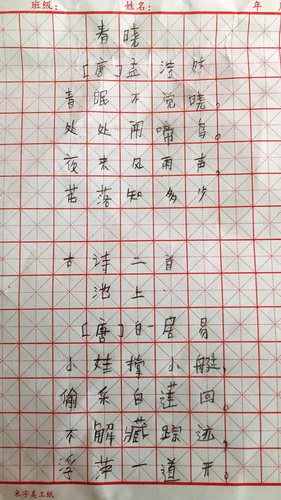 班级： 姓名： 年
春晓
[唐]孟浩然
春眠不觉晓。
处处闻啼鸟。
夜来风雨声，
花落知多少
古诗二首
池上
[唐]白居易
小娃撑小艇，
偷采白莲回。
不解藏踪迹，
浮萍一道开。
米字美工纸